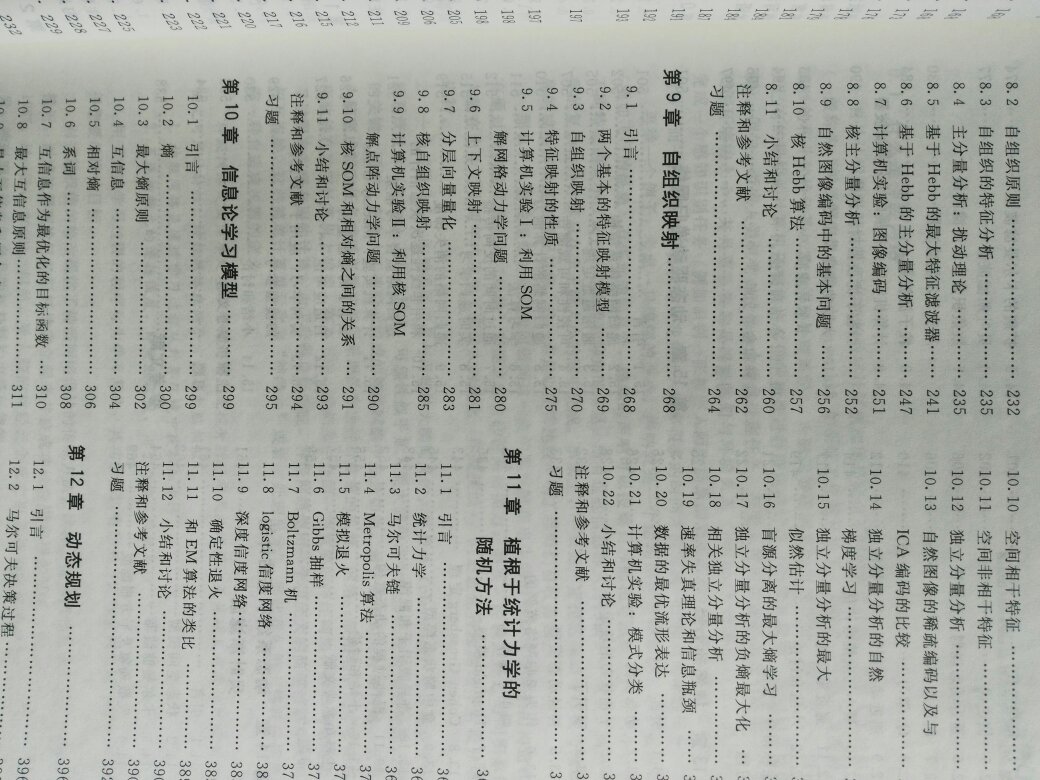 8.2 自组织原则 …………………… 232
8.3 自组织的特征分析 …………… 235
8.4 主分量分析：扰动理论 ……… 235
8.5 基于Hebb的最大特征滤波器 … 241
8.6 基于Hebb的主分量分析 …… 247
8.7 计算机实验：图像编码 ……… 251
8.8 核主分量分析 ………………… 252
8.9 自然图像编码中的基本问题 … 256
8.10 核Hebb算法 ……………… 257
8.11 小结和讨论 ………………… 260
注释和参考文献 …………………… 262
习题 ………………………………… 264
第9章 自组织映射 ……………… 268
9.1 引言 …………………………… 268
9.2 两个基本的特征映射模型 …… 269
9.3 自组织映射 …………………… 270
9.4 特征映射的性质 ……………… 275
9.5 计算机实验Ⅰ：利用SOM
解网格动力学问题 …………… 280
9.6 上下文映射 …………………… 281
9.7 分层向量量化 ………………… 283
9.8 核自组织映射 ………………… 285
9.9 计算机实验Ⅱ：利用核SOM
解点阵动力学问题 …………… 290
9.10 核SOM和相对熵之间的关系 … 291
9.11 小结和讨论 ………………… 293
注释和参考文献 …………………… 294
习题 ………………………………… 295
第10章 信息论学习模型 ……… 299
10.1 引言 ………………………… 299
10.2 熵 …………………………… 300
10.3 最大熵原则 ………………… 302
10.4 互信息 ……………………… 304
10.5 相对熵 ……………………… 306
10.6 系词 ………………………… 308
10.7 互信息作为最优化的目标函数 … 310
10.8 最大互信息原则 …………… 311
10.10 空间相干特征 ……………
10.11 空间非相干特征 …………
10.12 独立分量分析 ……………
10.13 自然图像的稀疏编码以及与
ICA编码的比较 ……………
10.14 独立分量分析的自然
梯度学习 ……………………
10.15 独立分量分析的最大
似然估计 ……………………
10.16 盲源分离的最大熵学习 …
10.17 独立分量分析的负熵最大化 …
10.18 相关独立分量分析 ………
10.19 速率失真理论和信息瓶颈
10.20 数据的最优流形表达
10.21 计算机实验：模式分类 …
10.22 小结和讨论 ………………
注释和参考文献 ……………………
习题 …………………………………
第11章 植根于统计力学的
随机方法 ……………
11.1 引言 …………………………
11.2 统计力学 ……………………
11.3 马尔可夫链 …………………
11.4 Metropolis算法 ……………
11.5 模拟退火 ……………………
11.6 Gibbs抽样 …………………
11.7 Boltzmann机 ………………
11.8 logistic信度网络 …………
11.9 深度信度网络 ………………
11.10 确定性退火 ………………
11.11 和EM算法的类比 …………
11.12 小结和讨论 ………………
注释和参考文献 ……………………
习题 …………………………………
第12章 动态规划 ………………
12.1 引言 …………………………
12.2 马尔可夫决策过程 …………